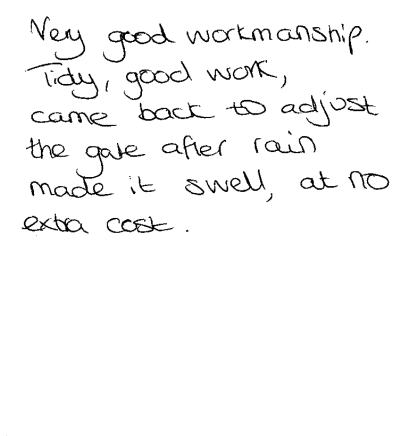 Very good workmanship.
Tidy, good work,
came back to adjust
the gate after rain
made it swell, at no
extra cost.